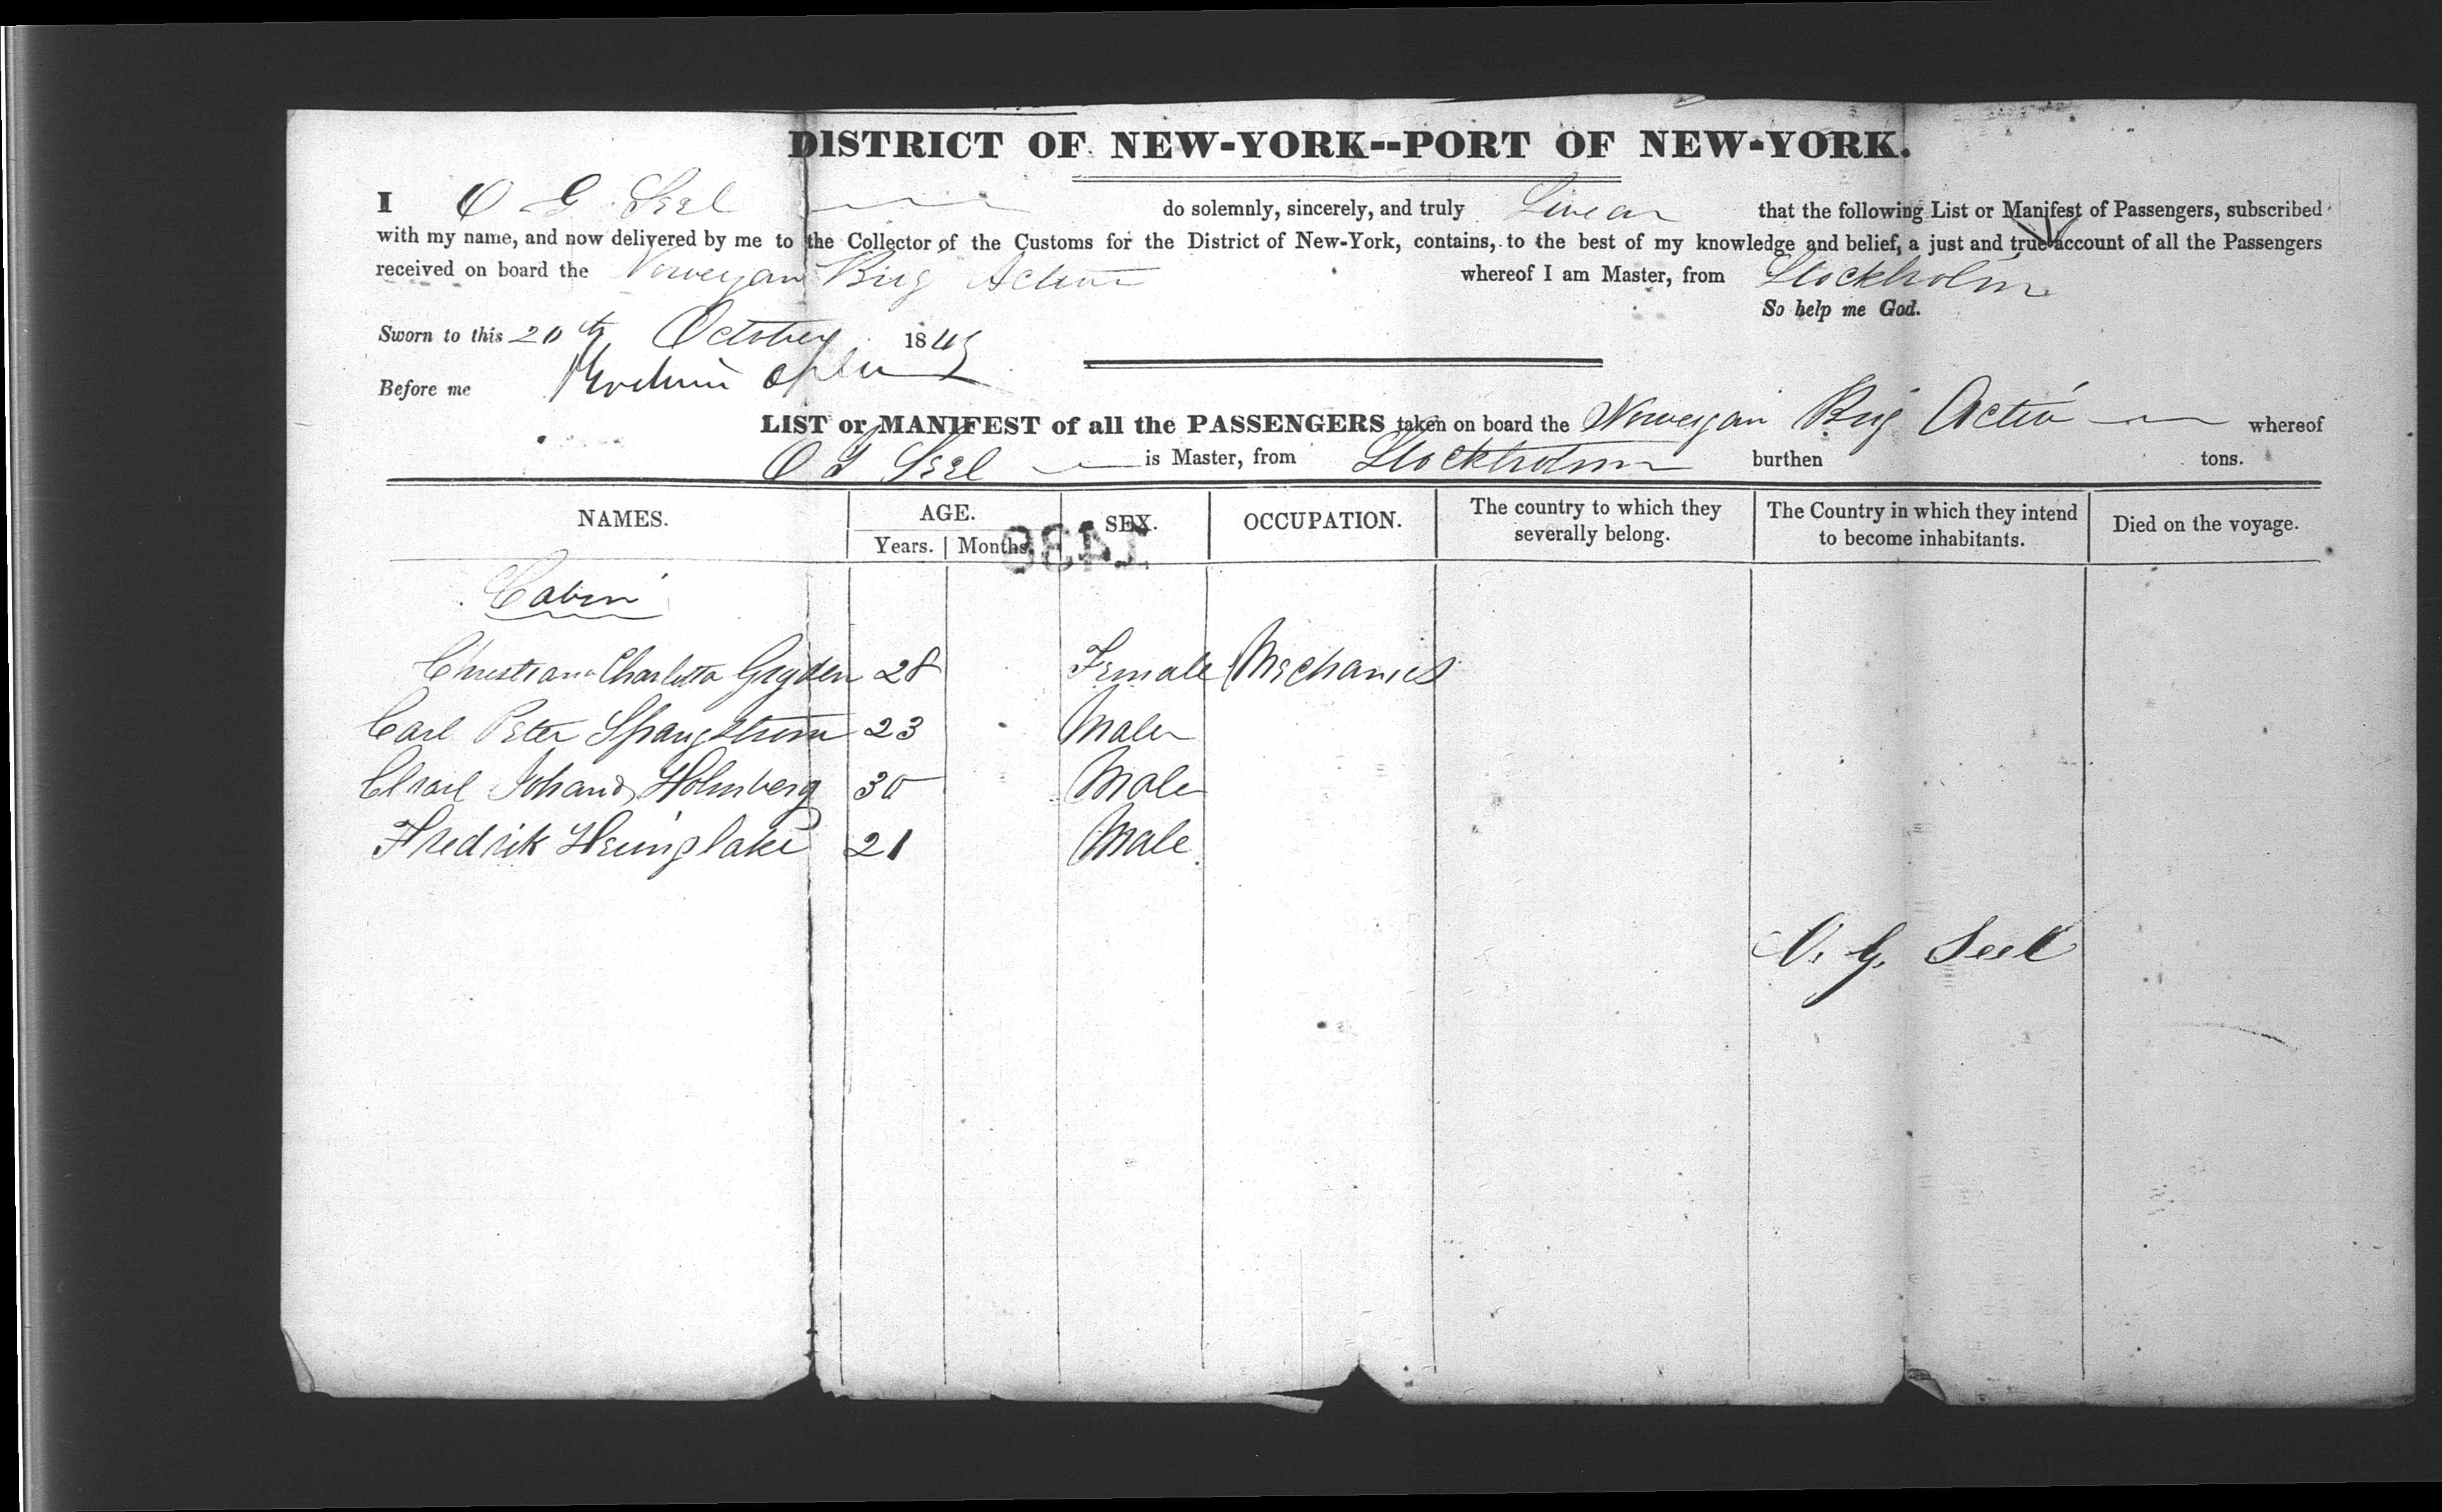 DISTRICT OF NEW-YORK--PORT OF NEW-YORK.
I O G Seel do solemnly, sincerely, and truly Swear that the following List or Manifest of Passengers, subscribed
with my name, and now delivered by me to the Collector of the Customs for the District of New-York, contains, to the best of my knowledge and belief, a just and true account of all the Passengers
received on board the Norwegan Brig Active whereof I am Master, from Stockholm
So help me God.
Sworn to this 20th October 184
Before me
LIST or MANIFEST of all the PASSENGERS taken on board the Norwegan Brig Activ whereof
O G Seel is Master, from Stockholm burthen tons.
NAMES. AGE. SEX. OCCUPATION. The country to which they severally belong. The Country in which they intend to become inhabitants. Died on the voyage.
Years. Months.
Cabin
Christiana Charlotta Gryden 28 Female Mechanics
Carl Peter Spangstrom 23 Male
Charl Johand Holmberg 30 Male
Fredrik Heinglake 21 Male
O. G. Seel